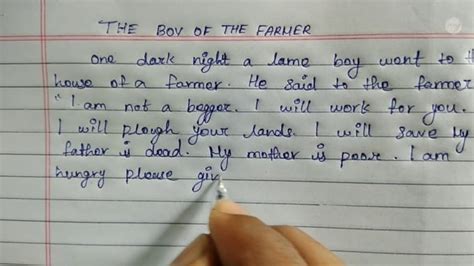 THE BOY OF THE FARMER
One dark night a lame boy went to th
house of a farmer. He said to the farmer
"I am not a beggar. I will work for you.
I will plough your lands. I will save my
father is dead. My mother is poor. I am
hungry please giv